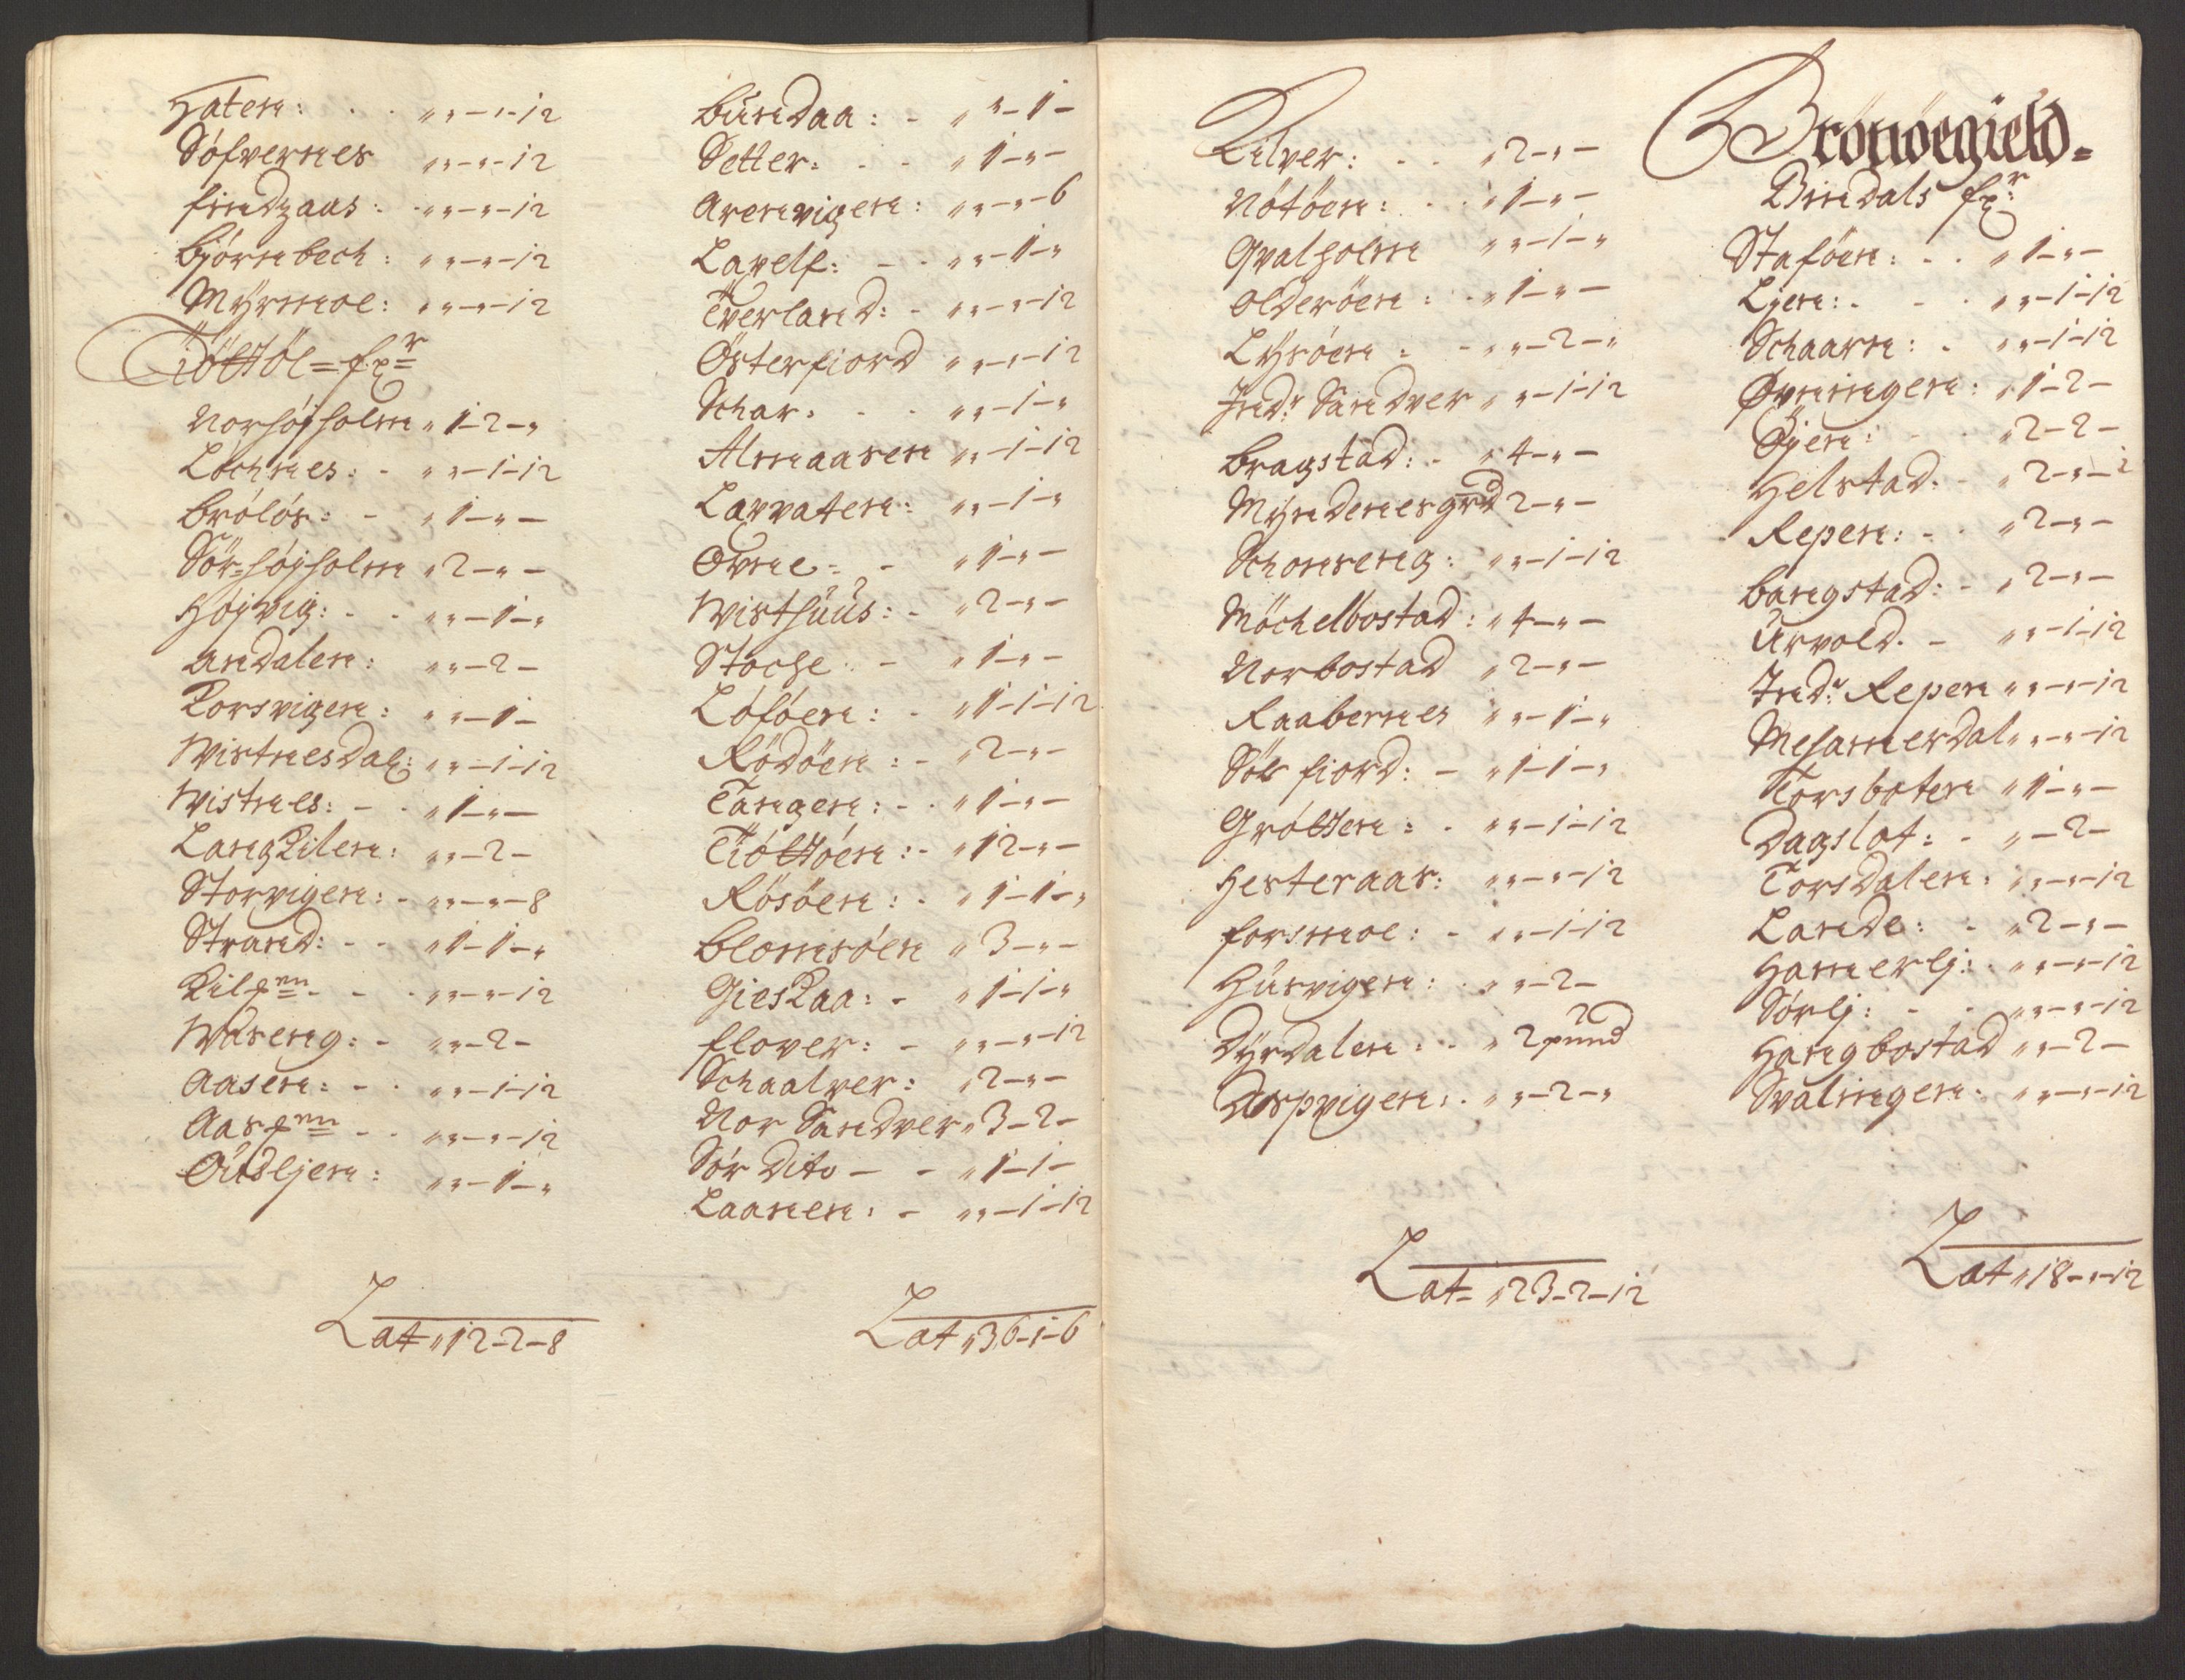 Haten: . . „ „ - „ - 12
Söfvernes „ „ - „ - 12
findzaas: - „ „ - „ - 12
Biörnbech: „ „ - „ - 12
Myrmoe: „ „ - „ - 12
Tiöttöe = fr
Norhöyholm „ 1 - 2 - „
Lochnes: - „ „ - 1 - 12
Brölös: - „ 1 - „ -
Sör=höyholm „ 2 - „ -
Höjvig: - - „ „ - 1 - „
andalen: „ „ - 2 -
Korsvigen: „ „ - 1 -
Wistnesdal: „ „ - 1 - 12
Wistnes: - - „ 1 - „ -
LangKilen: „ „ - 2 -
Storvigen: - „ „ - „ - 8
Strand: - - „ 1 - 1 - „
Kilen - - „ „ - „ - 12
Waseng: - „ „ - 2 -
Aasen: - - „ „ - 1 - 12
- - „ „ - „ - 12
Oudljen: „ „ - 1 - „
Lat „ 12 - 2 - 8
Bundaa: - „ „ - 1 -
Setter: - - „ 1 - „ -
Arenvigen: „ „ - „ - 6
Lavelf: - - „ „ - 1 - „
Everland: - „ „ - „ - 12
Österfiord „ „ - „ - 12
Schar: - - „ „ - 1 - „
Almaasen „ „ - 1 - 12
Lavvaten: „ „ - 1 - „
Ovne: - „ 1 - „ -
Wisthuus: - „ 2 - „ -
Stoche: - „ 1 - „ -
Löföen: - „ 1 - 1 - 12
Rödöen: - „ 2 - „ -
Tangen: - - „ 1 - „ -
Tiöttöen: - „ 12 - „ -
Rösöen: - „ 1 - 1 - „
Blomsöen „ 3 - „ -
GiesKaa: - „ 1 - 1 - „
flover: - „ „ - „ - 12
Schaalver: „ 2 - „ -
Nor Sandver „ 3 - 2 -
Sör Dito - - „ 1 - 1 -
Laanen: - „ „ - 1 - 12
Lat „ 36 - 1 - 6
Kilver: - - „ 2 - „ -
Nötöen: - - „ 1 - „ -
Qvalholm „ „ - 1 - „
Olderöen: - „ 1 - „ -
Lysöen: - „ „ - 2 - „
Indr Sandver „ „ - 1 - 12
Bragstad: - „ 4 - „ -
Myndenesgrd 2 - „ -
Schonseng: „ „ - 1 - 12
Möchelbostad: „ 4 - „ -
Norbostad „ 2 - „ -
Raabernes „ „ - 1 - „
Söls fiord: - „ 1 - 1 - „
Gröttem: - „ „ - 1 - 12
Hesteraas: „ „ - „ - 12
forsmoe: - „ „ - 1 - 12
Husvigen: - „ „ - 2 -
Dyrdalen: - „ 2 pund
Aspvigen: - „ „ - 2 - „
Lat - „ 23 - 2 - 12
Brönöegield =
Bindals fr
Staföen: - - „ 1 - „ -
Ljen: - - - „ „ - 1 - 12
Schaarn: - „ „ - 1 - 12
Øvningen: „ 1 - 2 -
Öyen: - - „ 2 - 2 -
Helstad: - „ 2 - „ -
Repen: - - „ 2 - „ -
Bangstad: - „ 2 - „ -
Urvold. - „ „ - 1 - 12
Indr Repen „ „ - „ - 12
Mesamerdal „ „ - „ - 12
Horsboten „ 1 - „ -
Dagslot: - „ - 2 -
Torsdalen: „ „ - „ - 12
Lande: - „ 2 - „ -
Hamerlj: - „ „ - „ - 12
Sörlj: - - „ „ - „ - 12
Hangbostad „ „ - 2 -
Svalningen: „ „ - „ - 12
Lat „ 18 - „ - 12